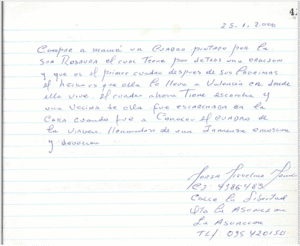 4.
25.1.2,000
Compre a mamá un Cuadro pintado por la
Sra Rosaura el cual tiene por detras una oracion
y que es el primer cuadro despues de sus
El hermoso que ella lo lleva a Valencia en donde
ella vive. El cuadro ahora tiene escarcha y
una vecina de ella fue escarchada en la
cara cuando fue a conocer el cuadro de
la virgen llenandose de una inmensa emocion
y devocion
CI 4186489
Calle La Libertad
La Asuncion
Tlf 095 420150